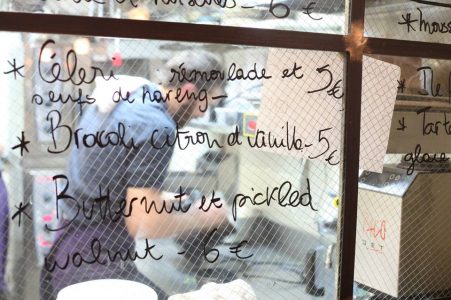 6€
* Céleri rémoulade et 5€
oeufs de hareng -
* Brocoli citron et vanilla - 5€
* Butternut et pickled
walnut - 6€
* mous
* Île
* Tarte
glace